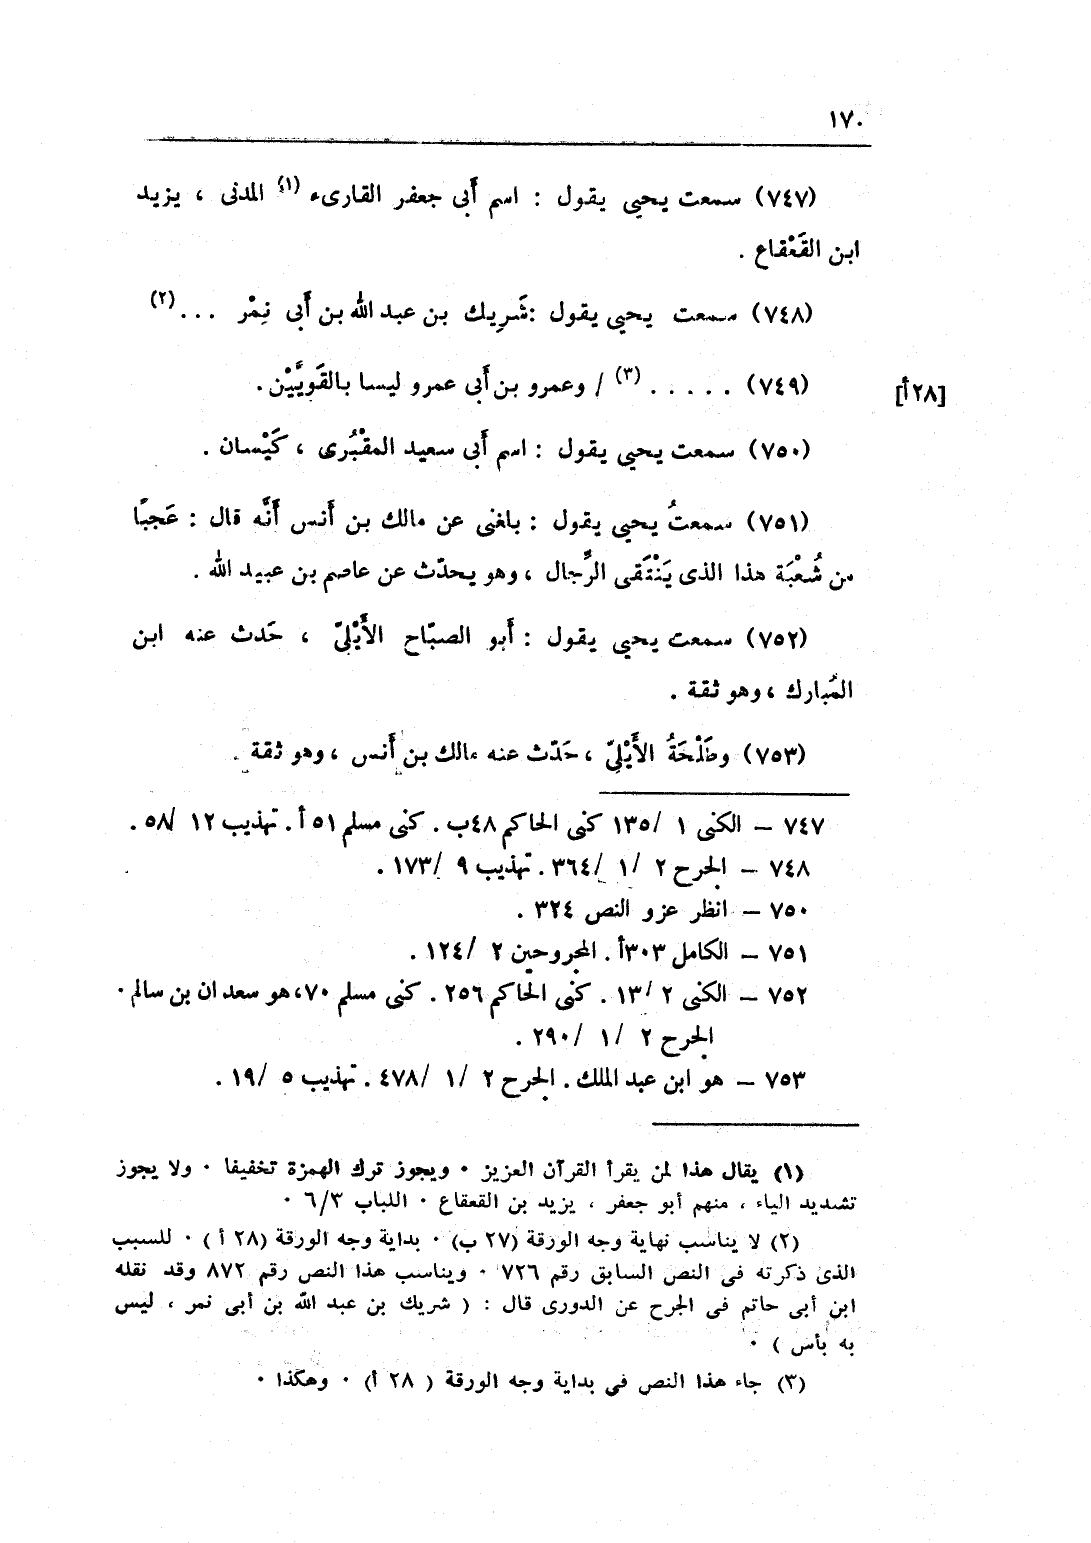 ١٧٠
(٧٤٧) سمعت يحيى يقول : اسم أَبى جعفر القارىء (١) المدنى ، يزيد
ابن القَعْقاع .
(٧٤٨) سمعت يحيى يقول :شَرِيك بن عبد الله بن أَبى نِمْر ... (٢)
(٧٤٩) ..... (٣) / وعمرو بن أَبى عمرو ليسا بالقَوِيَّيْن .
[٢٨أ]
(٧٥٠) سمعت يحيى يقول : اسم أَبى سعيد المقْبُرى ، كَيْسان .
(٧٥١) سمعتُ يحيى يقول : بلغنى عن مالك بن أَنس أَنَّه قال : عَجبًا
من شُعْبَة هذا الذى يَنْتَقى الرِّجال ، وهو يحدّث عن عاصم بن عبيد الله .
(٧٥٢) سمعت يحيى يقول : أَبو الصبّاح الأَيْلىّ ، حَدث عنه ابن
المُبارك ، وهو ثقة .
(٧٥٣) وطَلْحَةُ الأَيْلِىّ ، حَدّث عنه مالك بن أَنس ، وهو ثقة .
٧٤٧ – الكنى ١ /١٣٥ كنى الحاكم ٤٨ب . كنى مسلم ٥١ أ . تهذيب ١٢ /٥٨ .
٧٤٨ – الجرح ٢ /١ /٣٦٤ . تهذيب ٩ /١٧٣ .
٧٥٠ – انظر عزو النص ٣٢٤ .
٧٥١ – الكامل ٣٠٣أ . المجروحين ٢ /١٢٤ .
٧٥٢ – الكنى ٢ /١٣ . كنى الحاكم ٢٥٦ . كنى مسلم ٧٠، هو سعدان بن سالم ٠
الجرح ٢ /١ /٢٩٠ .
٧٥٣ – هو ابن عبد الملك . الجرح ٢ /١ /٤٧٨ . تهذيب ٥ /١٩ .
(١) يقال هذا لمن يقرأ القرآن العزيز ٠ ويجوز ترك الهمزة تخفيفا ٠ ولا يجوز
تشديد الياء ، منهم أبو جعفر ، يزيد بن القعقاع ٠ اللباب ٦/٣ ٠
(٢) لا يناسب نهاية وجه الورقة (٢٧ ب) ٠ بداية وجه الورقة (٢٨ أ ) ٠ للسبب
الذى ذكرته فى النص السابق رقم ٧٢٦ ٠ ويناسب هذا النص رقم ٨٧٢ وقد نقله
ابن أبى حاتم فى الجرح عن الدورى قال : ( شريك بن عبد الله بن أبى نمر ، ليس
به بأس ) ٠
(٣) جاء هذا النص فى بداية وجه الورقة ( ٢٨ أ) ٠ وهكذا ٠